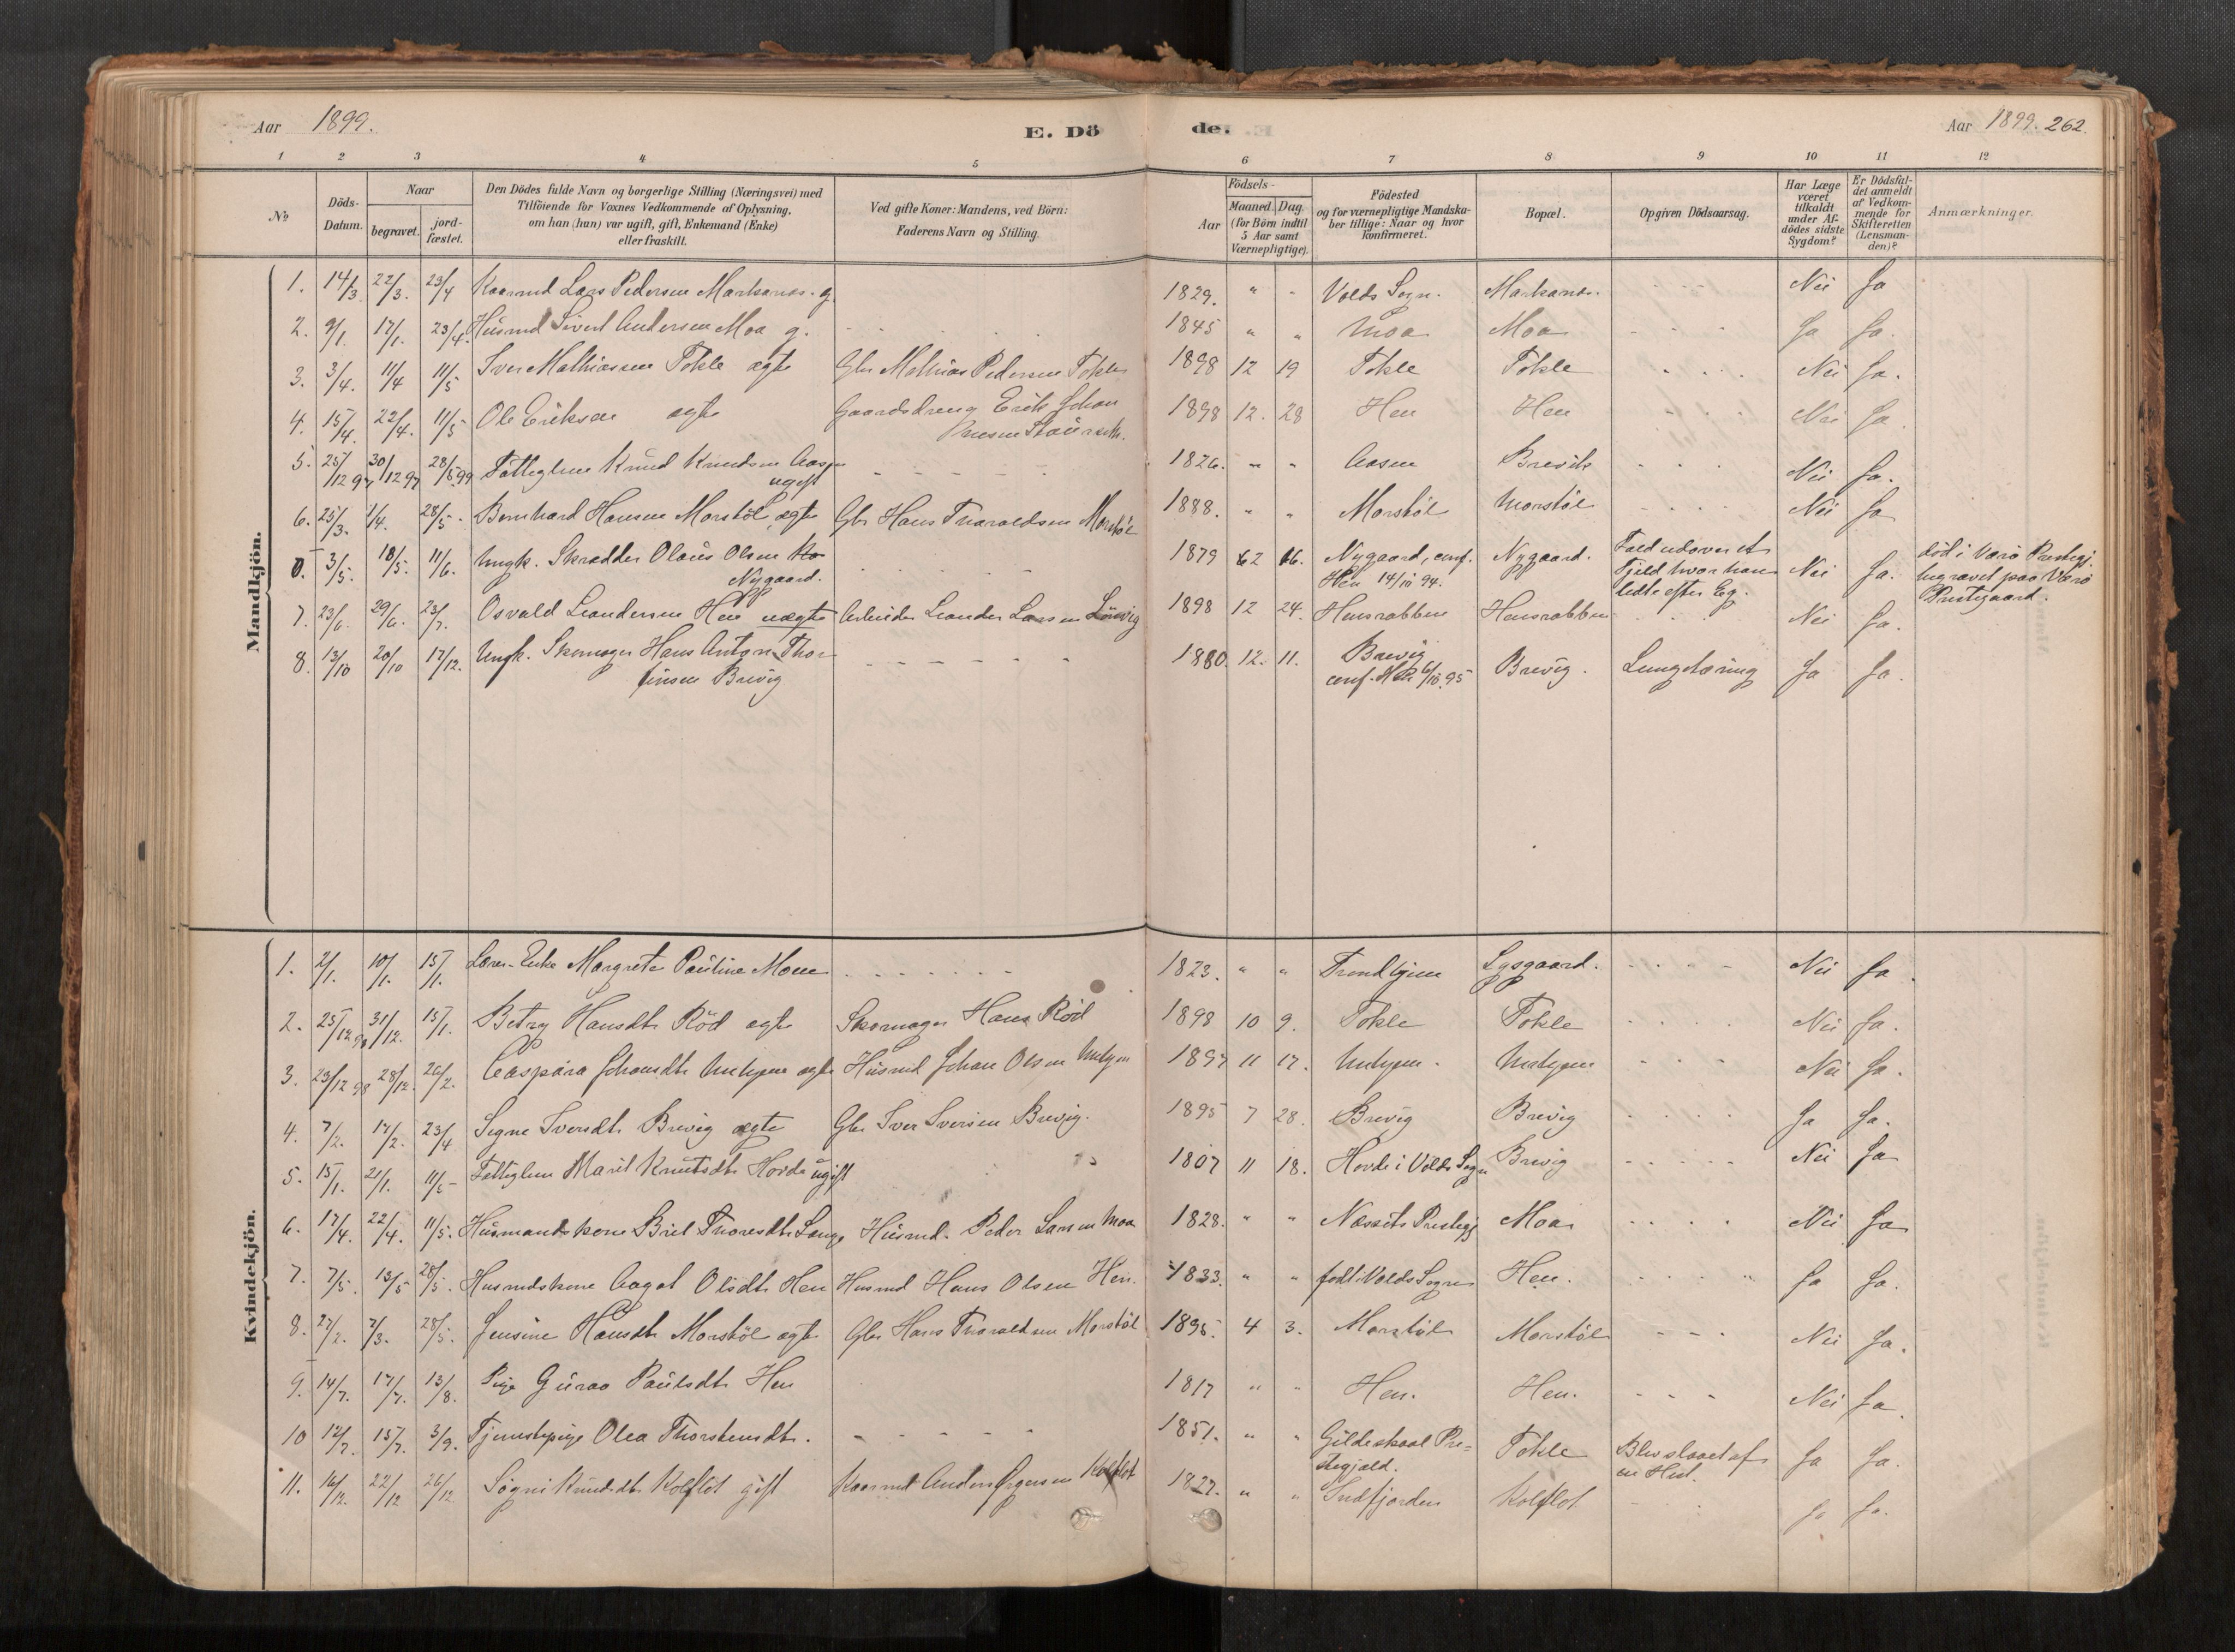 Aar 1899.
E. Dö de.
Aar 1899. 262.
1 2 3 4 5 6 7 8 9 10 11 12
No
Döds-Datum.
Naar
begravet.
jord-fæstet.
Den Dödes fulde Navn og borgerlige Stilling (Næringsvei) med
Tilföiende for Voxnes Vedkommende af Oplysning,
om han (hun) var ugift, gift, Enkemand (Enke)
eller fraskilt.
Ved gifte Koner: Mandens, ved Börn:
Faderens Navn og Stilling.
Födsels-
Aar
Maaned. Dag.
(for Börn indtil
5 Aar samt
Værnepligtige).
Födested
og for værnepligtige Mandska-
ber tillige: Naar og hvor
konfirmeret.
Bopæl.
Opgiven Dödsaarsag.
Har Læge
været
tilkaldt
under Af-
dödes sidste
Sygdom?
Er Dödsfal-
det anmeldt
af Vedkom-
mende for
Skifteretten
(Lensman-
den)?
Anmærkninger.
Mandkjön.
1. 14/3 22/3. 23/4 Kaarmd Lars Pedersen g. 1829. " " Volds Sogn. Nei Ja
2. 9/1. 17/1. 23/4. Husmd Sivert Andersen Moa g. 1845 " " Moa Moa Ja Ja.
3. 3/4. 11/4 11/5 Iver Mathiassen Tokle ægte Gbr Mathias Pedersen Tokle 1898 12 19 Tokle Tokle Nei Ja.
4. 15/4. 22/4. 11/5 Ole Eriksen ægte Gaardsdreng Erik Johan 1898 12. 28 Hen Hen Nei Ja.
5. 25/12 97 30/12 97 28/5.99 Fattiglem Knud Knudsen Aasen ugift 1826. " " Aasen Brevik Nei Ja.
6. 25/3. 1/4. 28/5. Bernhard Hansen Morstöl, ægte Gbr Hans Tharaldsen Morstöl 1888. " " Morstöl Morstöl Nei Ja
0. 3/5. 18/5. 11/6. Ungk. Skrædder Olaus Olsen 1879 16. Nygaard, conf. Nygaard. Fald udover et Nei Ja. död i Værö Prestegj.
Nygaard. Hen 14/10 94. Fjeld hvor han begravet paa Værö
ledte efter Eg. Prestegaard.
7. 23/6. 29/6. 23/7. Osvald Leandersen Hen uægte Arbeider Leander Larsen 1898 12 24. Hensrabben Hensrabben Nei Ja.
8. 13/10 20/10 17/12. Ungk. Skomager Hans Anton Tho- 1880. 12. 11. Brevig Brevig. Lungetæring Ja Ja.
Brevig conf. Hen 6/10.95
Kvindekjön.
1. 2/1. 10/1. 15/1. Enke Margrete Pauline Moen 1823. " " Trondhjem Lysgaard. Nei Ja.
2. 25/12 98 31/12. 15/1. Betzy Hansdtr Röd ægte Skomager Hans Röd 1898 10 9. Tokle Tokle Nei Ja.
3. 23/12 98 28/12. 26/2. Caspara Johansdtr ægte Husmd Johan Olsen 1897 11 17. Nei Ja.
4. 7/2. 17/2. 23/4 Signe Iversdtr Brevig ægte Gbr Iver Iversen Brevig. 1895 7 28. Brevig Brevig Ja Ja.
5. 15/1. 21/1. 11/5 Fattiglem Marit Knutsdtr Hovde ugift 1807 11 18. Hovde i Volds Sogn Brevig Nei Ja
6. 17/4. 22/4. 11/5. Husmandskone Brit Thoresdtr Lange Husmd. Peder Larsen Moa 1828. " " Næssets Prestegj Moa Nei Ja
7. 7/5. 13/5 28/5. Husmdskone Aagot Olsdtr Hen Husmd Hans Olsen Hen. 1833. " " født Volds Sogn Hen. Ja Ja.
8. 27/2. 7/3. 28/5. Jensine Hansdtr Morstöl ægte Gbr Hans Tharaldsen Morstöl 1895. 4 3. Morstöl Morstöl Nei Ja.
9. 14/7. 17/7. 13/8. Pige Guroo Paulsdtr Hen 1817 " " Hen. Hen. Nei Ja.
10 12/7. 15/7. 3/9. Tjenestepige Olea Thorstensdtr. 1851. " " Gildeskaal Pre= Tokle Blev slaaet af Ja Ja.
stegjæld. en Hest.
11. 16/12. 22/12 26/12 Sögni Knudsdtr Kolflot gift Kaarmd Anders Kolflot 1827. " " Sndfjorden Kolflot Ja Ja.